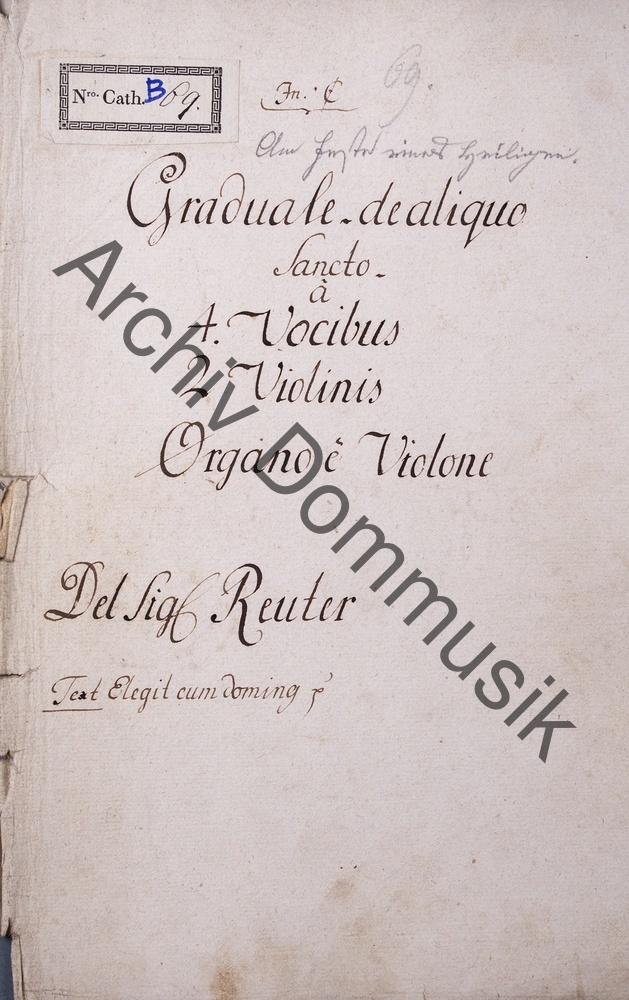 Nro. Cath. B 69.
69.
In: C
Am Feste eines Heiligen.
Graduale de aliquo
Sancto
à
4. Vocibus
2 Violinis
Organo è Violone
Del Sig Reuter
Text Elegit eum doming
Archiv Dommusik